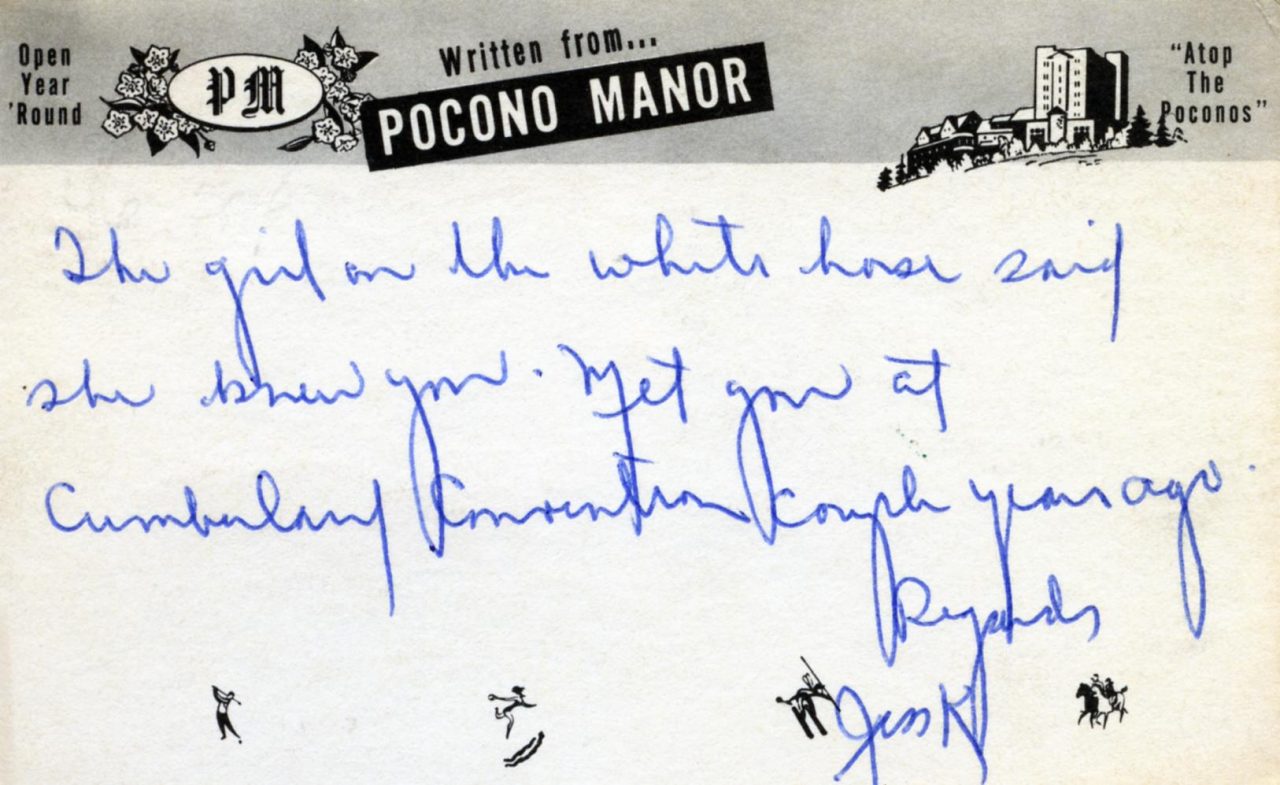 Open
Year
'Round
PM
Written from...
POCONO MANOR
"Atop
The
Poconos"
The girl on the white horse said
she knew you. Met you at
Cumberland Convention couple years ago.
Regards
Jess K